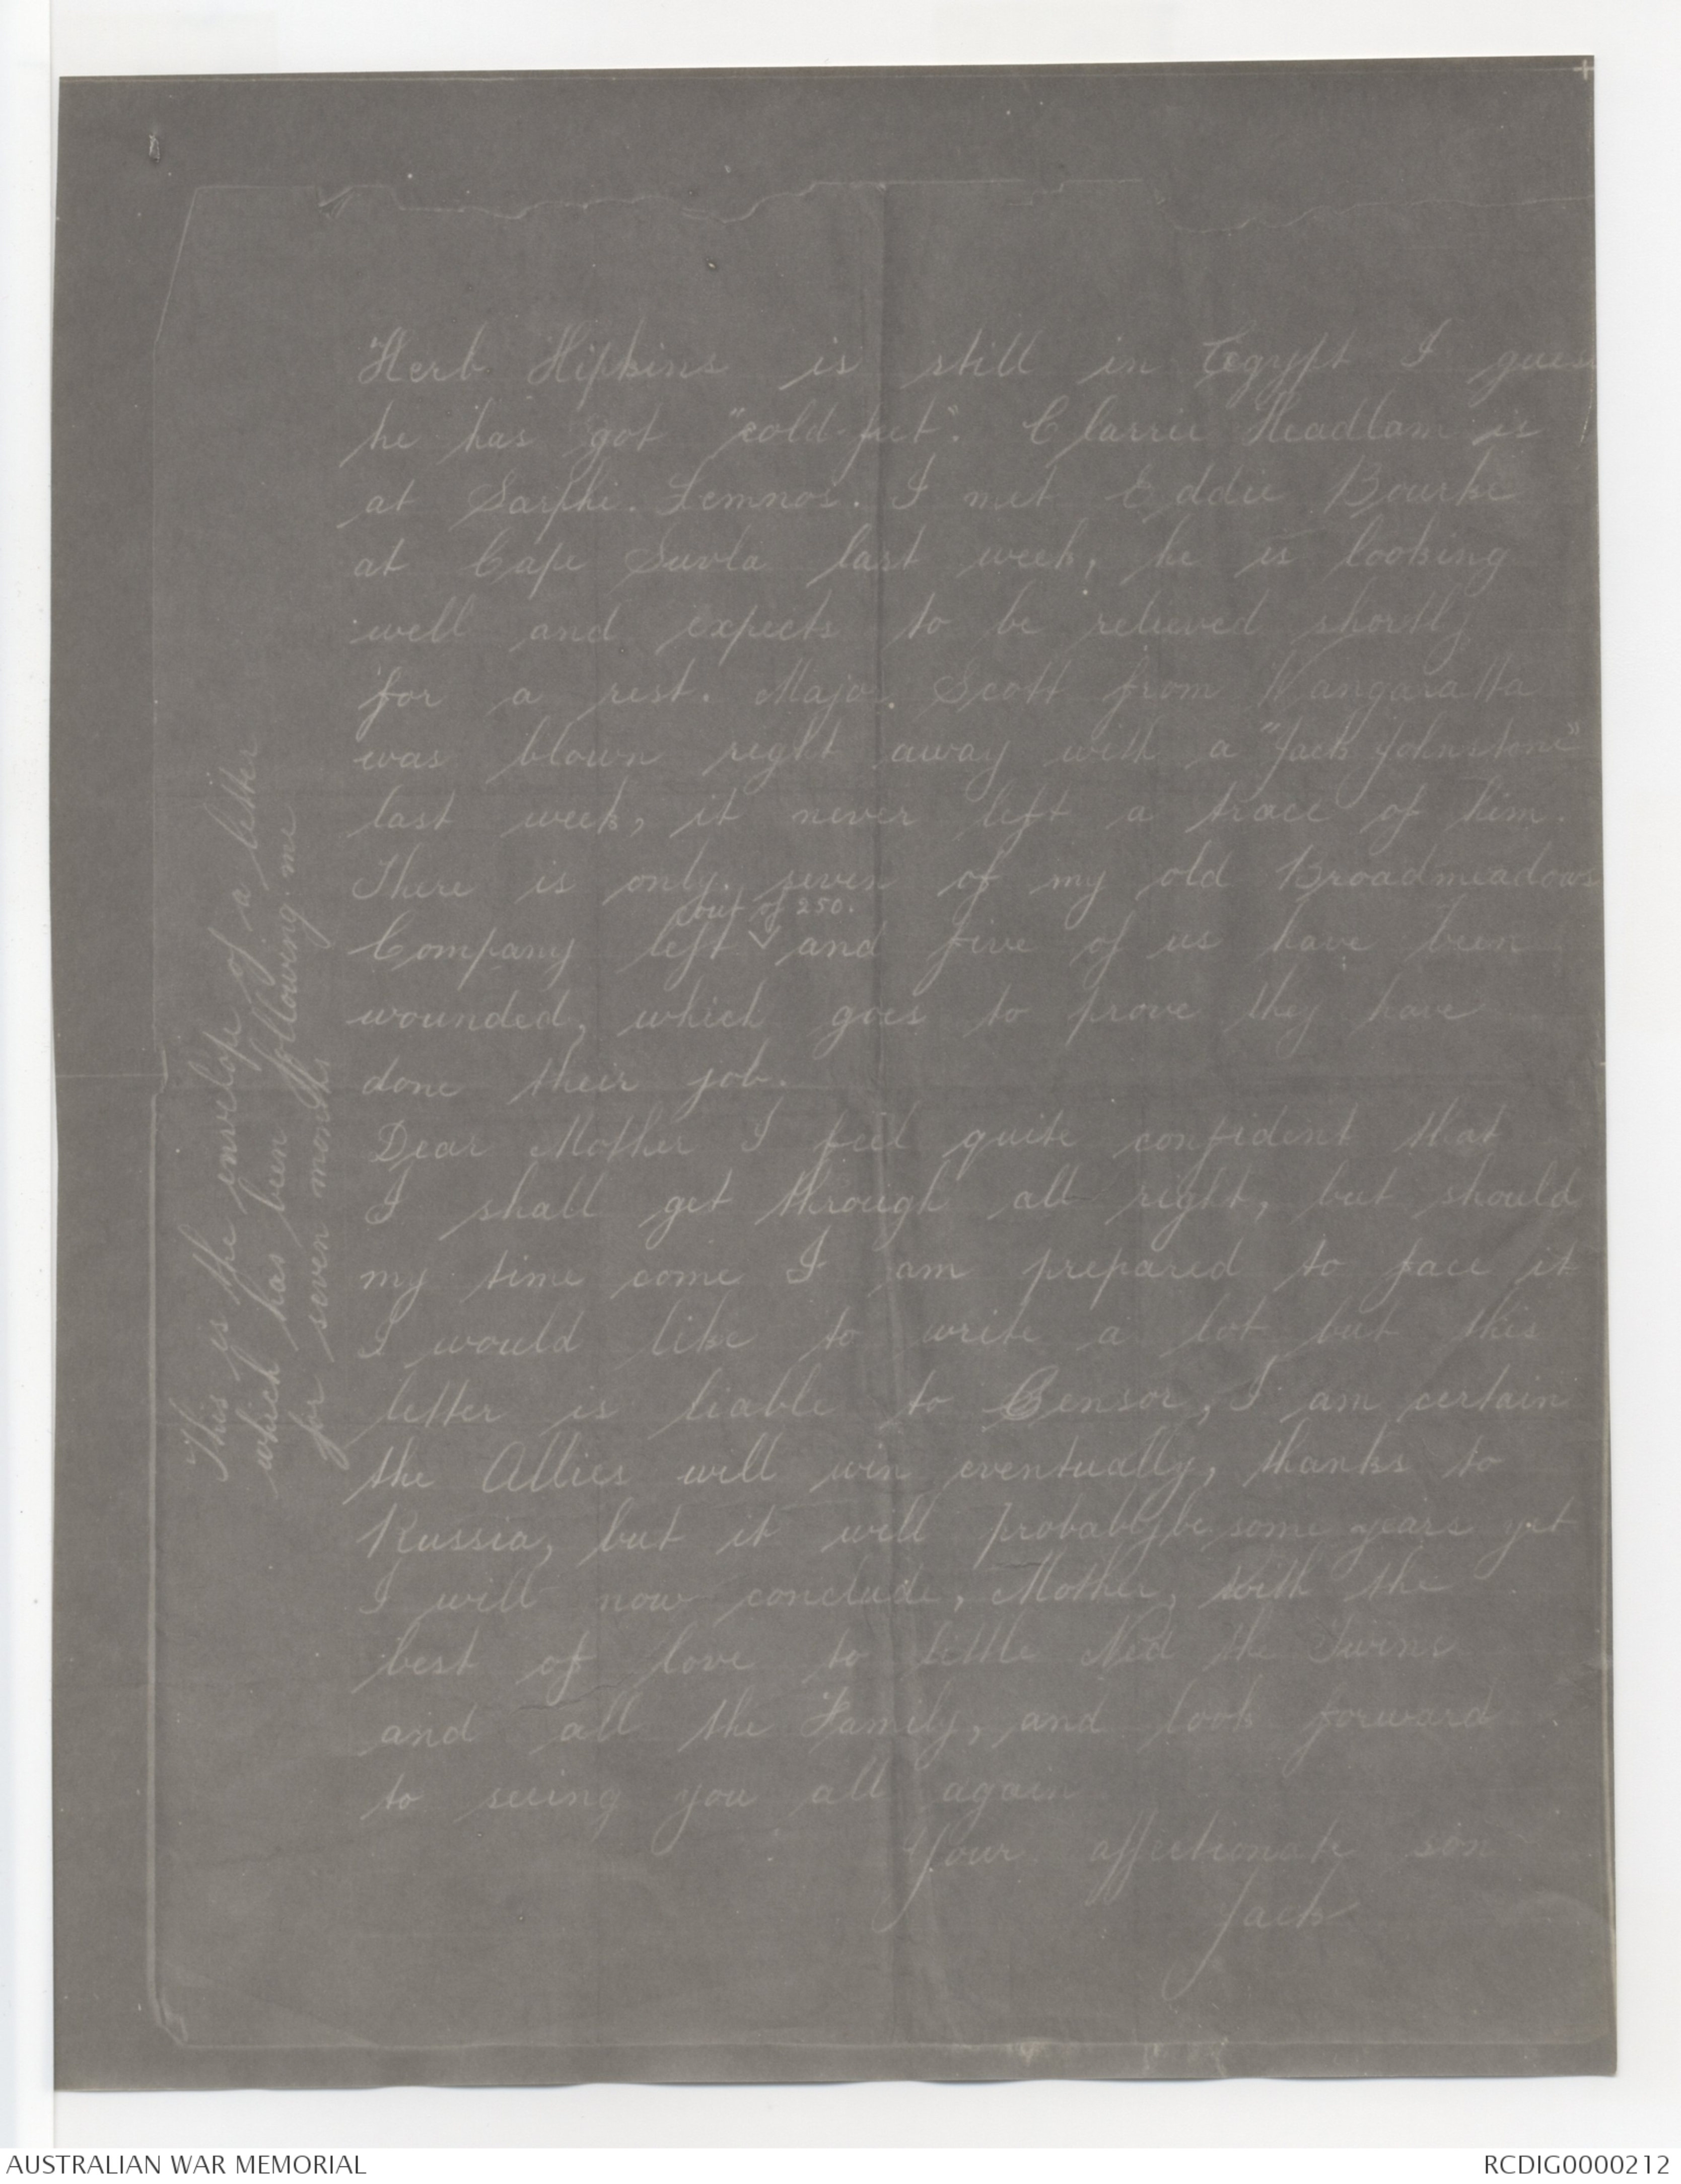 Herb Hipkins is still in Egypt I guess
he has got "cold-feet". Clarrie Headlam is
at Sarphi. Lemnos. I met Eddie Bourke
at Cape Suvla last week, he is looking
well and expects to be relieved shortly
for a rest. Major Scott from Wangaratta
was blown right away with a "Jack Johnstone"
last week, it never left a trace of him.
There is only seven of my old Broadmeadows
out of 250.
Company left and five of us have been
wounded, which goes to prove they have
done their job.
Dear Mother I feel quite confident that
I shall get through all right, but should
my time come I am prepared to face it
I would like to write a lot but this
letter is liable to Censor, I am certain
the Allies will win eventually, thanks to
Russia, but it will probably be some years yet
I will now conclude, Mother, with the
best of love to little Ned the Twins
and all the Family, and look forward
to seeing you all again
Your affectionate son
Jack
This is the envelope of a letter
which has been following me
for seven months
AUSTRALIAN WAR MEMORIAL
RCDIG0000212